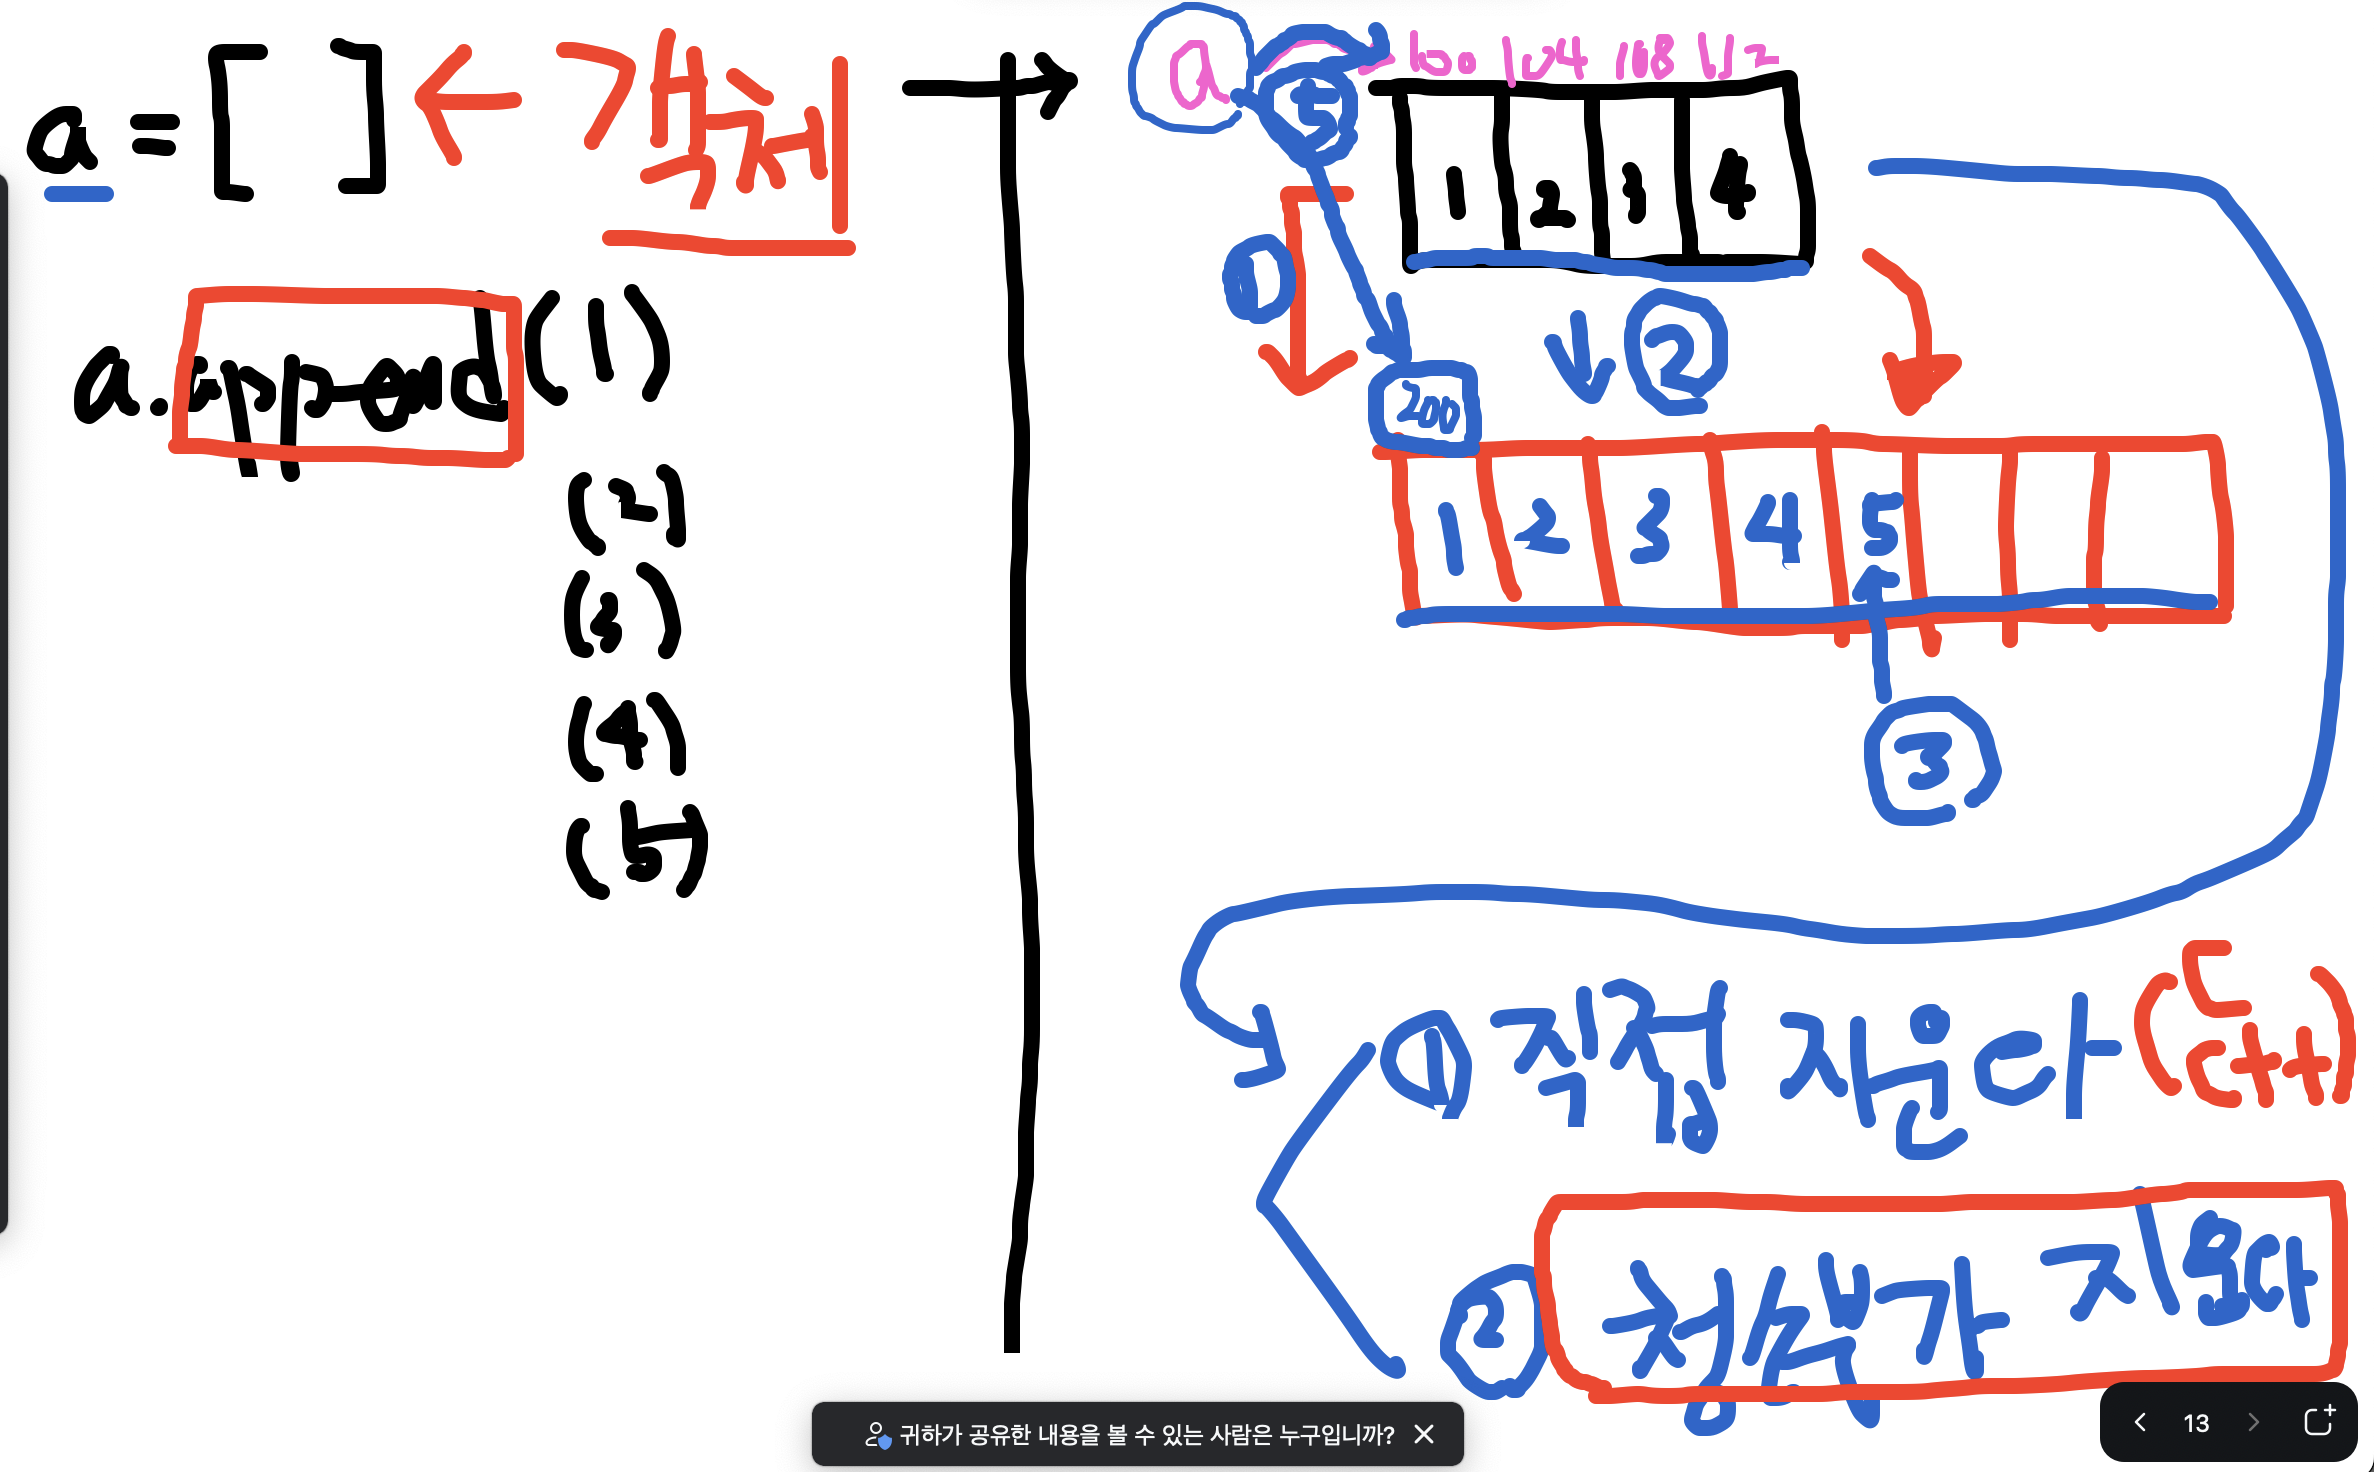 a = [ ] ← 객체
a.append(1)
(2)
(3)
(4)
(5)
a 100 104 108 112
⑤
1 2 3 4
① ②
200
1 2 3 4 5
③
① 직접 지운다 (C C++)
② 청소부가 지운다
귀하가 공유한 내용을 볼 수 있는 사람은 누구입니까?
13